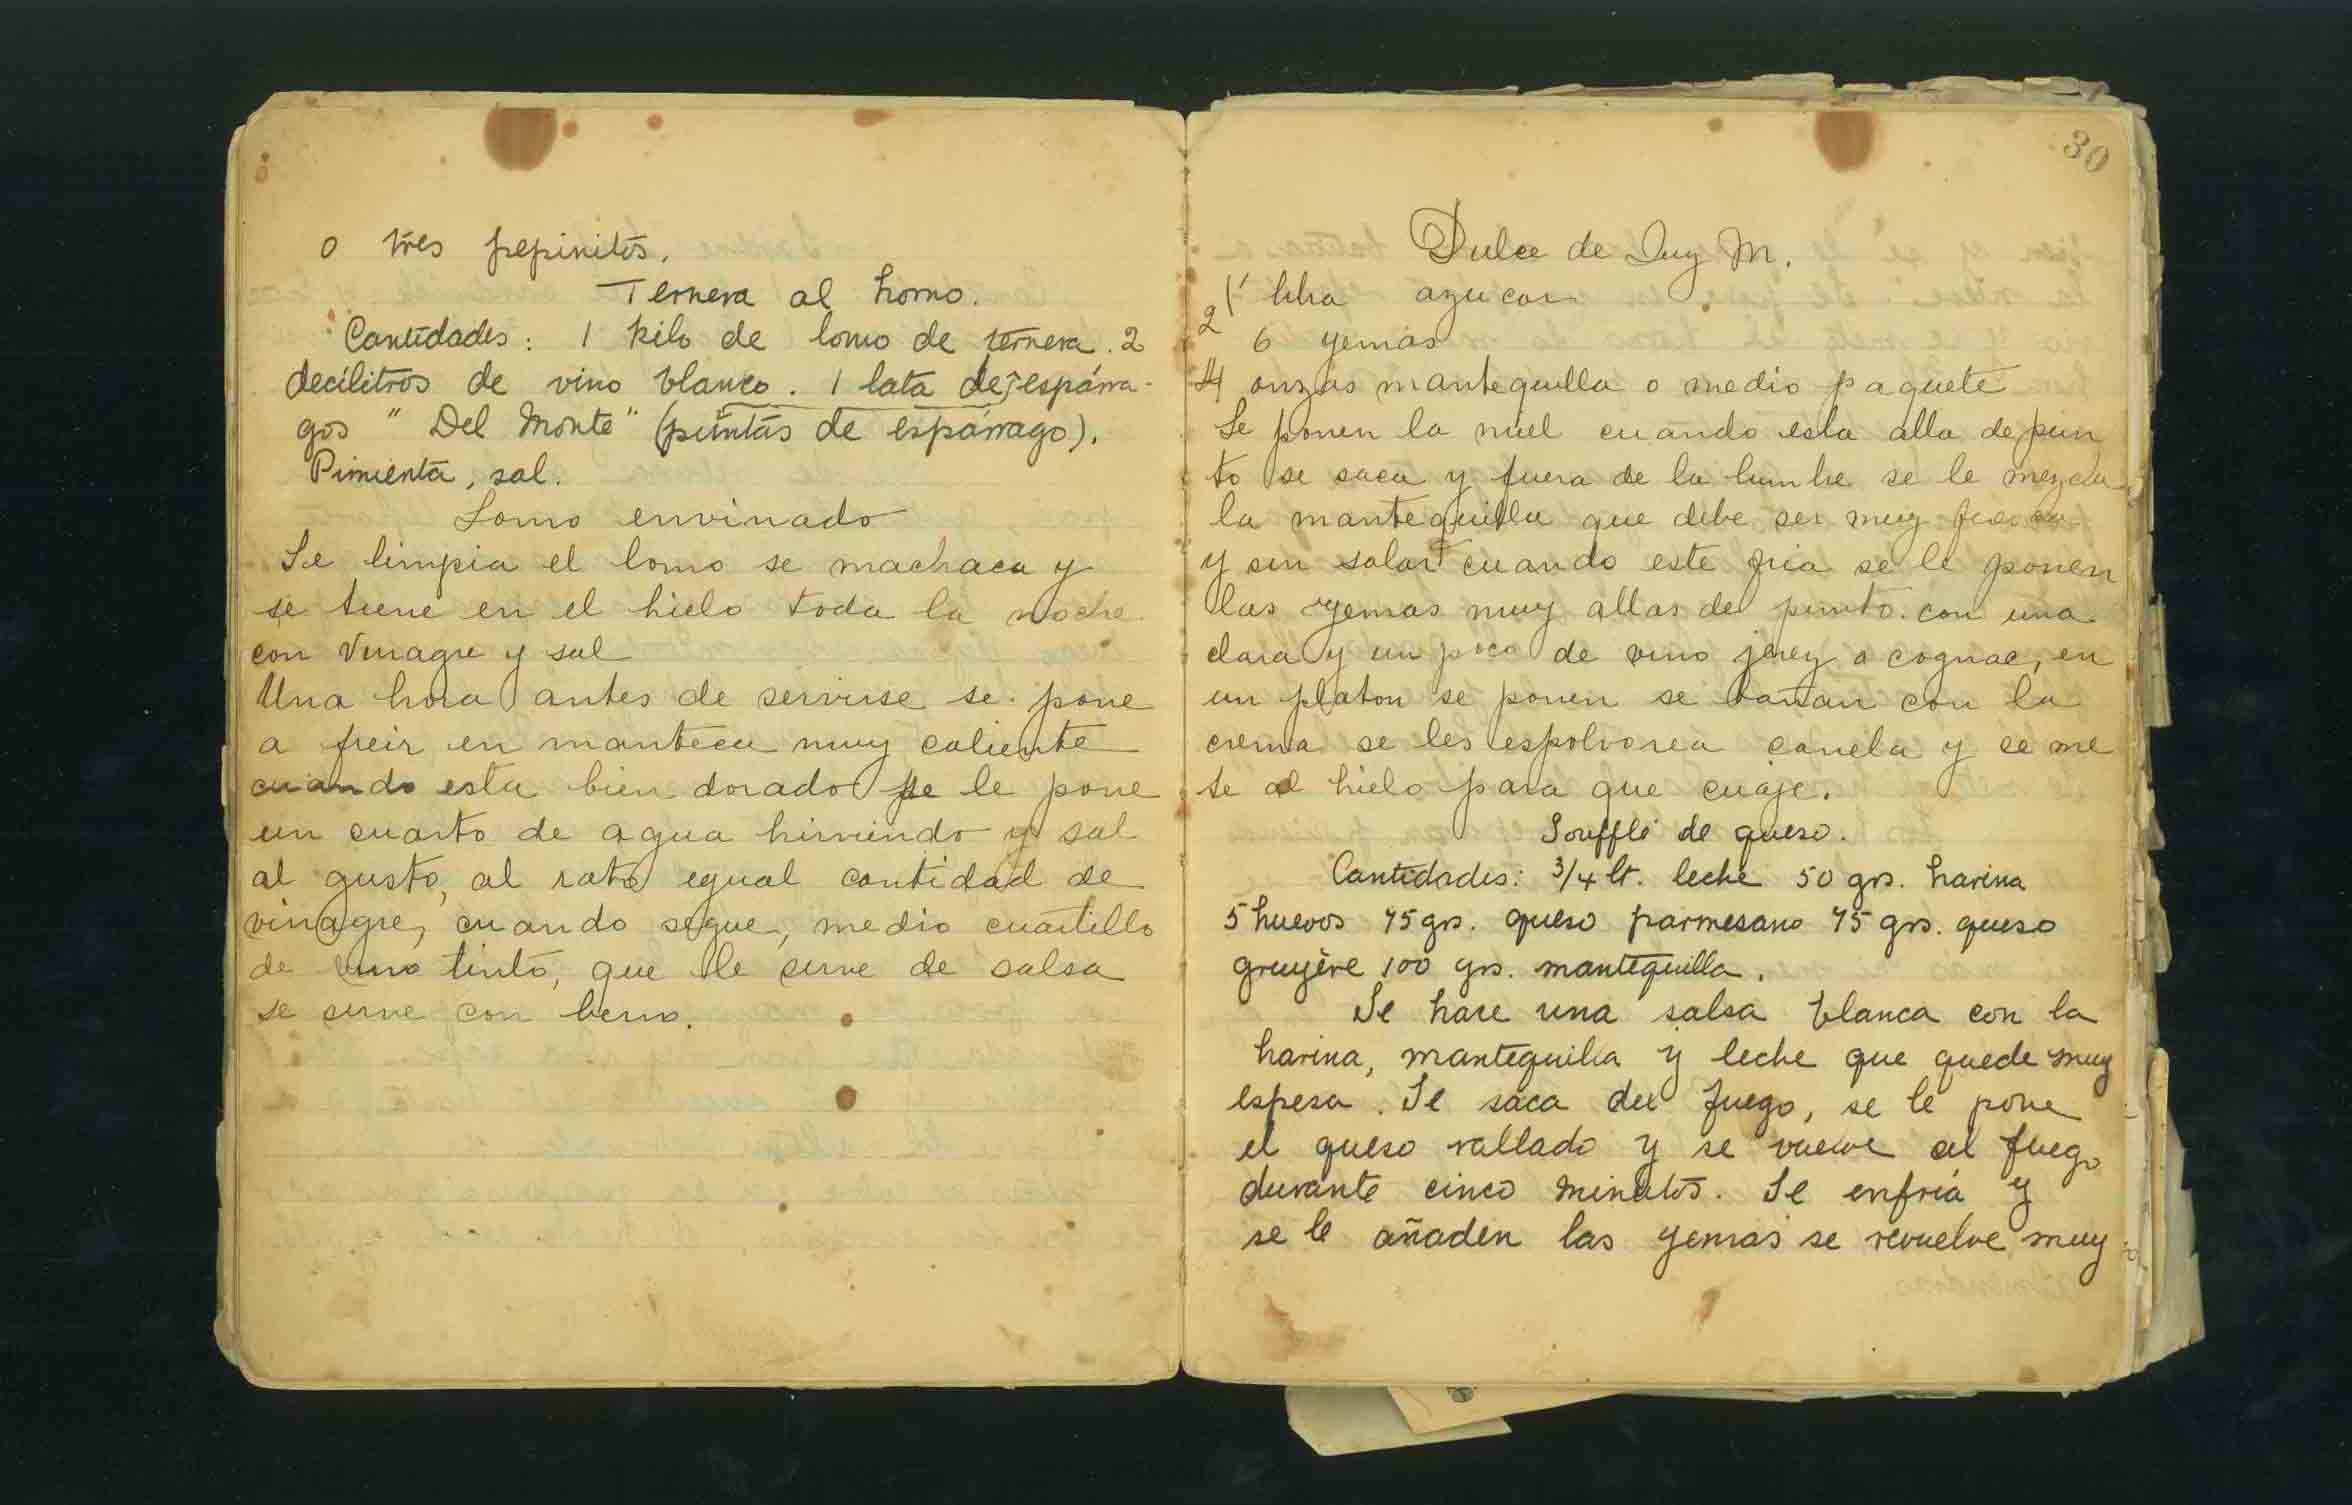 o tres pepinitos.
Ternera al horno.
Cantidades: 1 kilo de lomo de ternera. 2
decilitros de vino blanco. 1 lata de espárra-
gos "Del Monte" (puntas de espárrago).
Pimienta, sal.
Lomo envinado
Se limpia el lomo se machaca y
se tiene en el hielo toda la noche
con vinagre y sal
Una hora antes de servirse se pone
a freir en manteca muy caliente
cuando esta bien dorado se le pone
un cuarto de agua hirviendo y sal
al gusto, al rato egual cantidad de
vinagre, cuando seque, medio cuartillo
de vino tinto, que le sirve de salsa
se sirve con berro.
30
Dulce de Luz M.
1/2 libra azucar
6 yemas
4 onzas mantequilla o medio paquete
Se ponen la miel cuando esta alta de pun
to se saca y fuera de la lumbre se le mezcla
la mantequilla que debe ser muy fresca
y sin salar cuando este fria se le ponen
las yemas muy altas de punto. con una
clara y un poco de vino jerez o cognac, en
un platon se ponen se bañan con la
crema se les espolvorea canela y se me
te al hielo para que cuaje.
Soufflé de queso.
Cantidades: 3/4 lt. leche 50 grs. harina
5 huevos 75 grs. queso parmesano 75 grs. queso
gruyère 100 grs. mantequilla.
Se hace una salsa blanca con la
harina, mantequilla y leche que quede muy
espesa. Se saca del fuego, se le pone
el queso rallado y se vuelve al fuego
durante cinco minutos. Se enfría y
se le añaden las yemas se revuelve muy